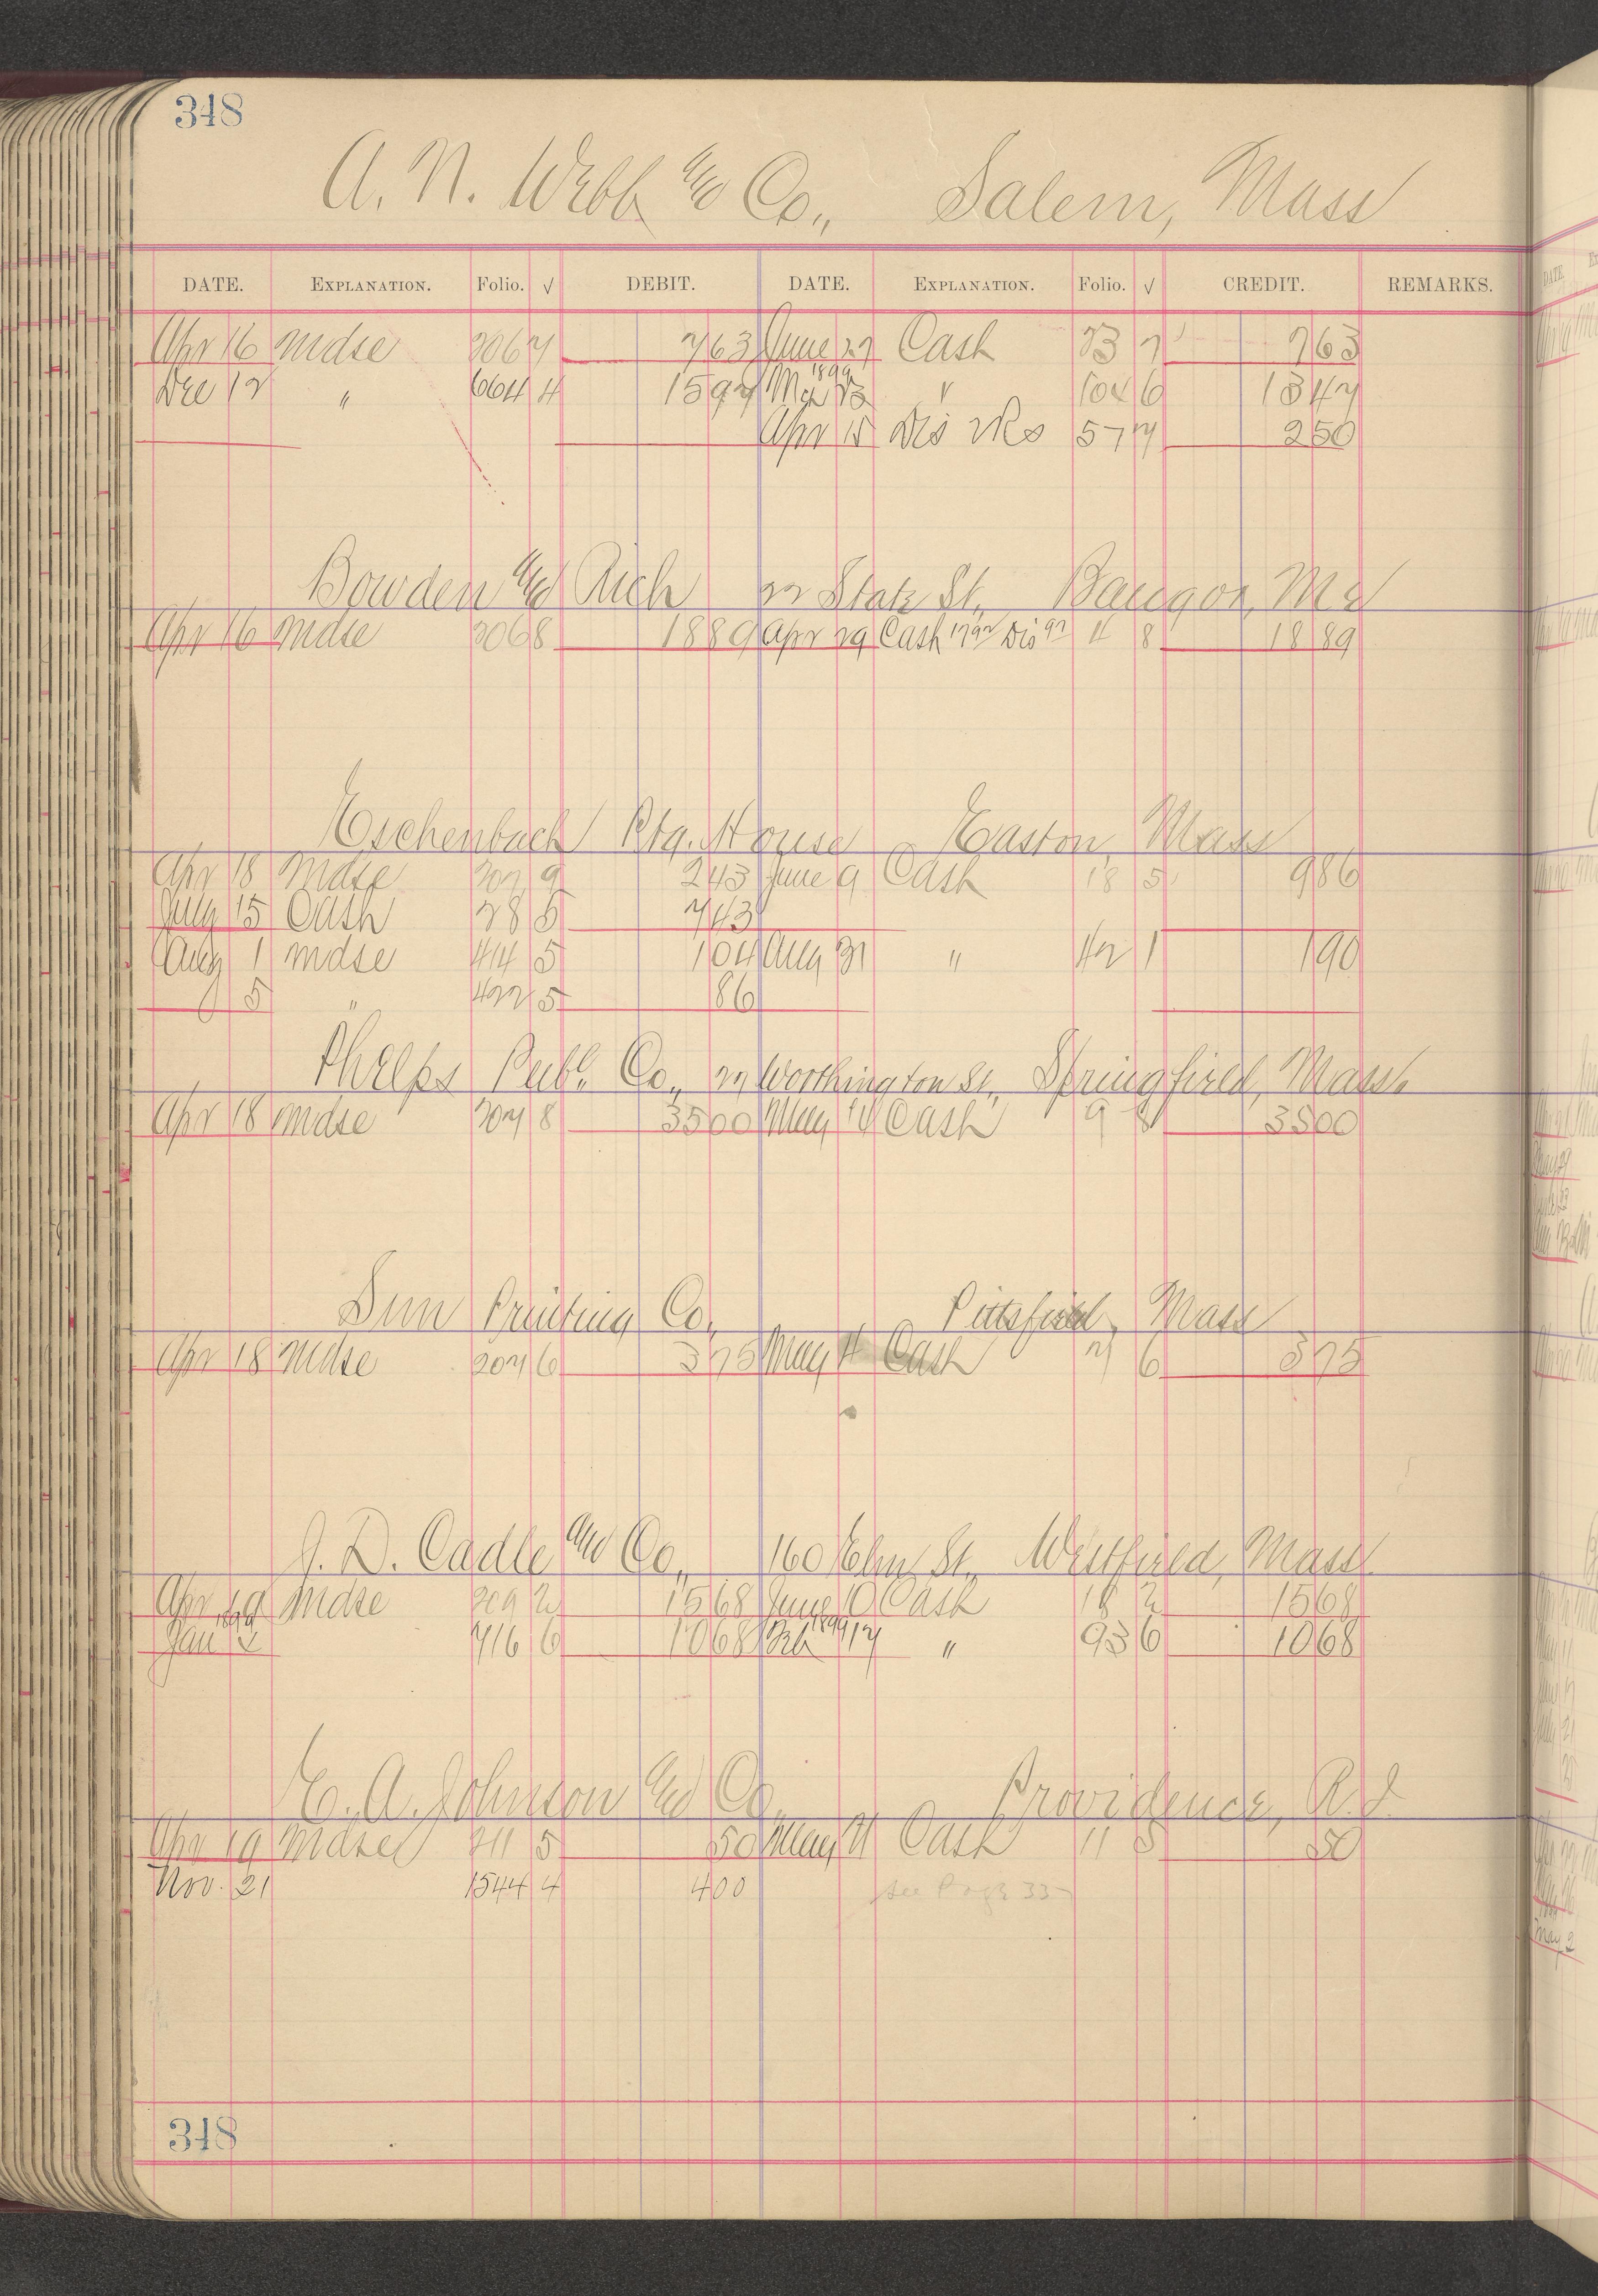 348
A. N. Webb and Co., Salem, Mass
DATE. EXPLANATION. Folio. √ DEBIT. DATE. EXPLANATION. Folio. √ CREDIT. REMARKS.
Apr 16 Mdse 206 7 763 June 27 Cash 23 7 763
1899
Dec 12 " 664 4 1597 Mch " 104 6 1347
Apr 15 Dis &Rs 57 7 250
Bowden and Rich 22 State St., Bangor, Me
Apr 16 Mdse 206 8 1889 Apr 29 Cash 1797 Dis 92 4 8 1889
Eschenbach Ptg. House Easton, Mass
Apr 18 Mdse 207 9 243 June 9 Cash 18 5 986
July 15 Cash 28 5 743
Aug 1 Mdse 414 5 104 Aug 31 " 42 1 190
5 " 422 5 86
Phelps Publ. Co., Worthington St., Springfield, Mass.
Apr 18 Mdse 207 8 3500 May Cash 9 8 3500
Sun Printing Co., Pittsfield, Mass
Apr 18 Mdse 207 6 375 May Cash 7 6 375
J. D. Cadle and Co., 160 Elm St., Westfield, Mass
Apr 19 Mdse 209 2 1568 June 10 Cash 18 2 1568
1899 1899
Jan 716 6 1068 Feb 17 " 93 6 1068
E. A. Johnson and Co. Providence, R.I.
Apr 19 Mdse 211 5 50 May Cash 11 5 50
Nov. 21 1544 4 400 see Page 33
348